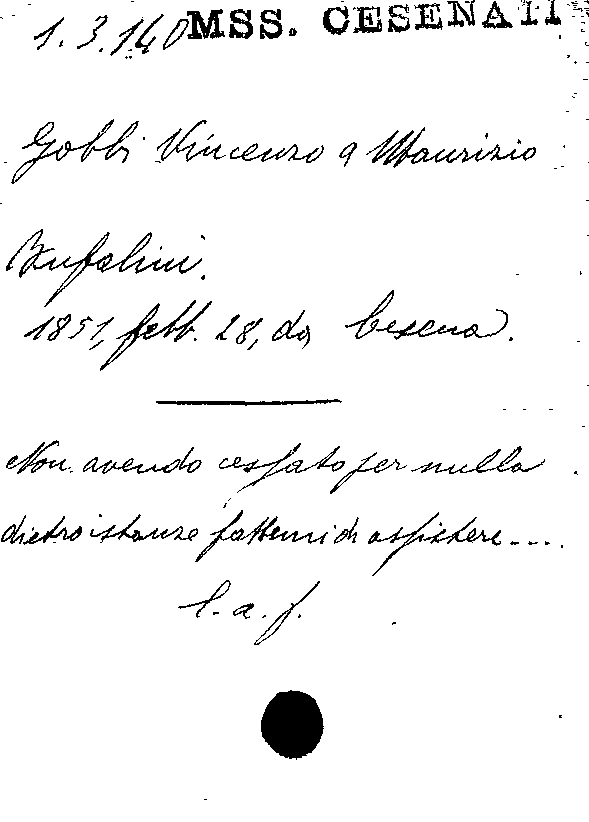 1.3.140 MSS. CESENATI
Gobbi Vincenzo a Maurizio
Bufalini.
1851, febb. 28, da Cesena.
Non avendo cessato per nulla
dietro istanze fattemi di assistere....
l. a. f.